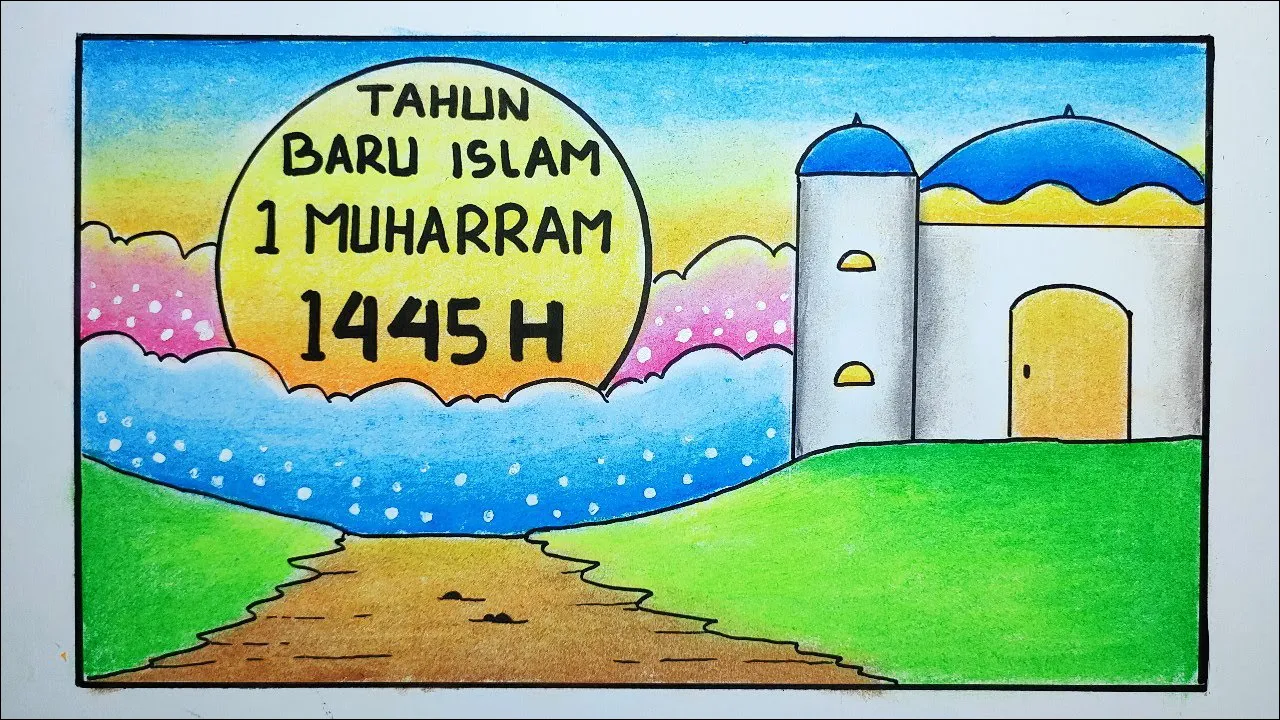 TAHUN
BARU ISLAM
1 MUHARRAM
1445 H